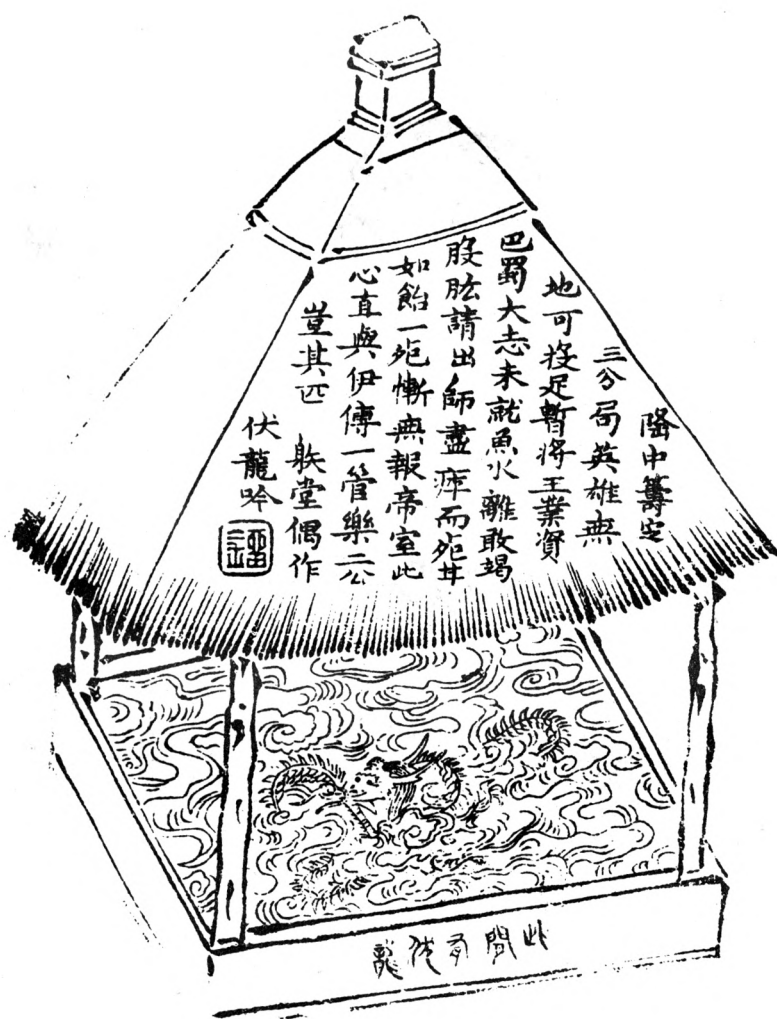 隆中籌定
三分局英雄無
地可投足暫將王業資
巴蜀大志未就魚水離敢竭
股肱請出師盡瘁而死甘
如飴一死慚無報帝室此
心直與伊傅一管樂二公
豈其匹 堂偶作
伏龍吟
此間有伏龍